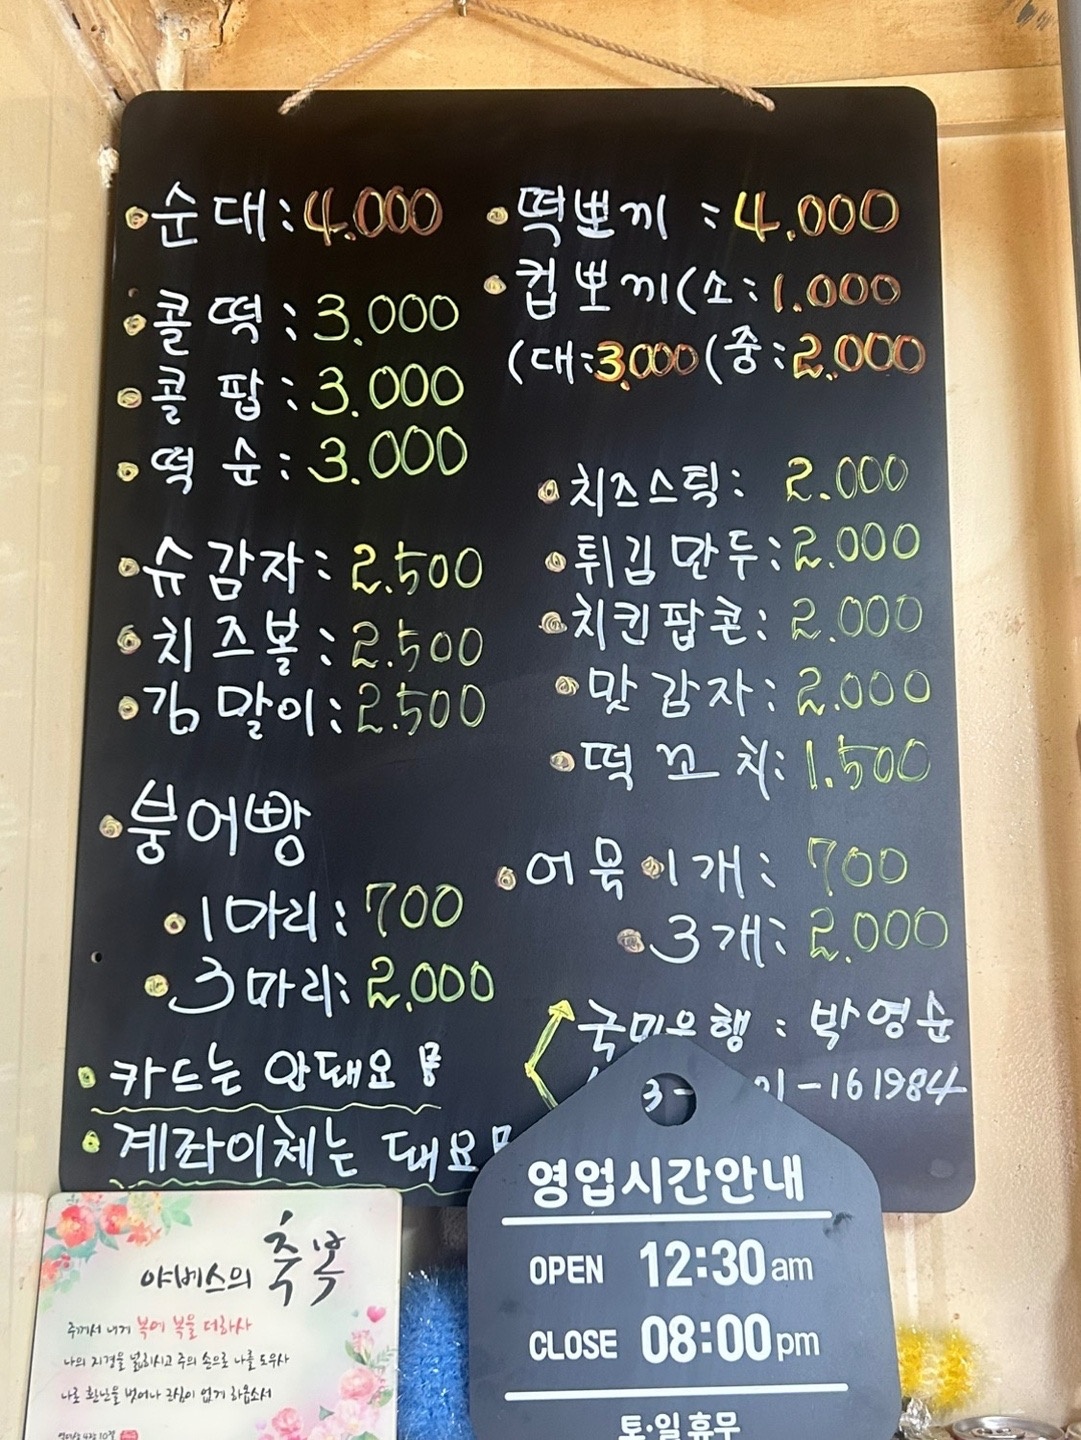 순대:4.000
콜떡:3.000
콜팝:3.000
떡순:3.000
슈감자:2.500
치즈볼:2.500
김말이:2.500
붕어빵
1마리:700
3마리:2.000
카드는 안돼요!
계좌이체는 돼요!
떡뽀끼:4.000
컵뽀끼(소:1.000
(대:3.000(중:2.000
치즈스틱:2.000
튀김만두:2.000
치킨팝콘:2.000
맛감자:2.000
떡꼬치:1.500
어묵 1개:700
3개:2.000
국민은행:박영순
-161984
야베스의 축복
주께서 내게 복에 복을 더하사
나의 지경을 넓히시고 주의 손으로 나를 도우사
나로 환난을 벗어나 근심이 없게 하옵소서
영업시간안내
OPEN 12:30am
CLOSE 08:00pm
토·일휴무